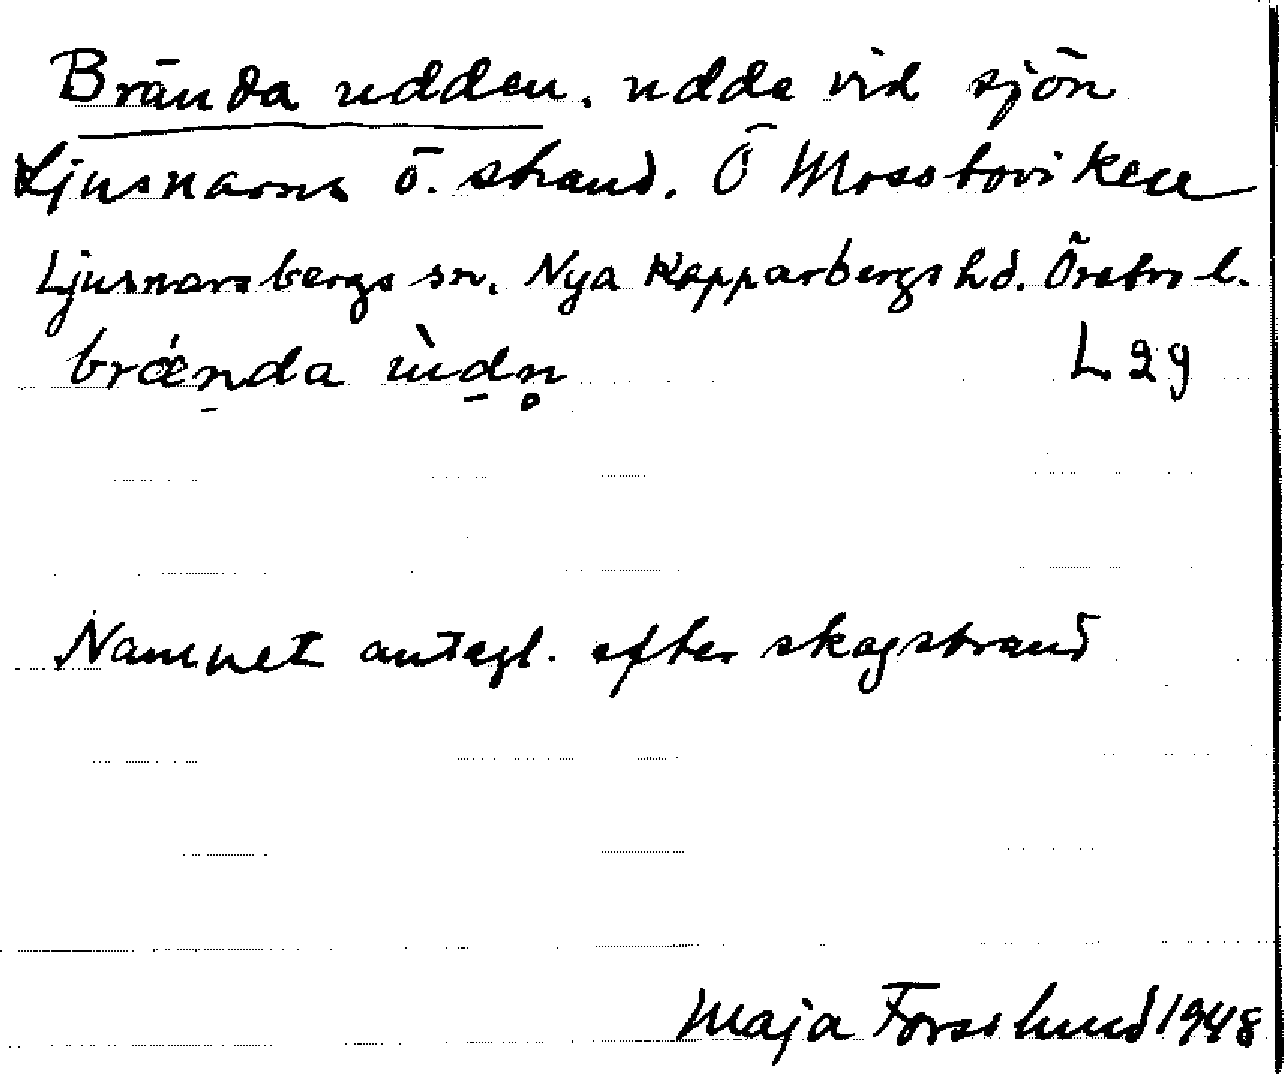 Brända udden. udde vid sjön
Ljusnarns ö. strand. Ö Mosstorviken
Ljusnarsbergs sn. Nya Kopparbergs hd. Örebro l.
brǽn̠da ùd̠n̥ L 29
Namnet antagl. efter skogsbrand
Maja Forsslund 1948